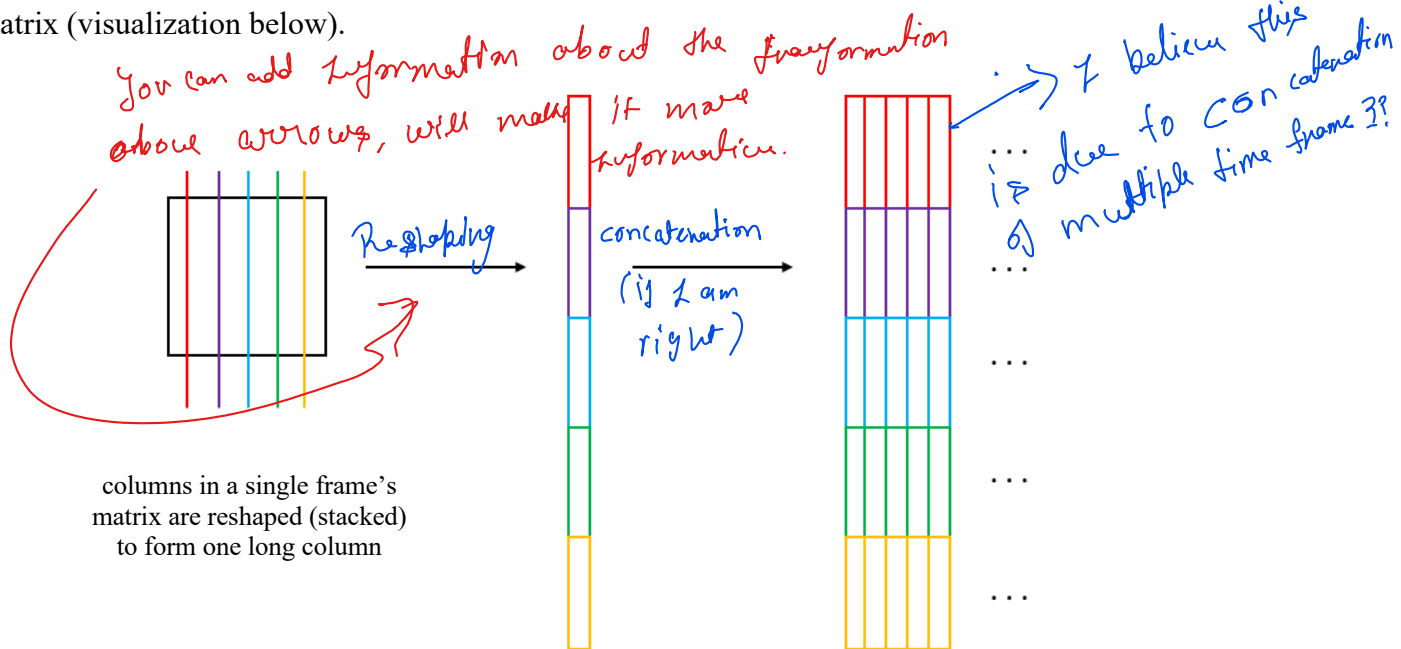 atrix (visualization below).
You can add Information about the transformation
above arrows, will make it more
information.
I believe this
is due to concatenation
of multiple time frame ??
Reshaping
concatenation
(if I am
right)
...
...
...
...
...
columns in a single frame's
matrix are reshaped (stacked)
to form one long column